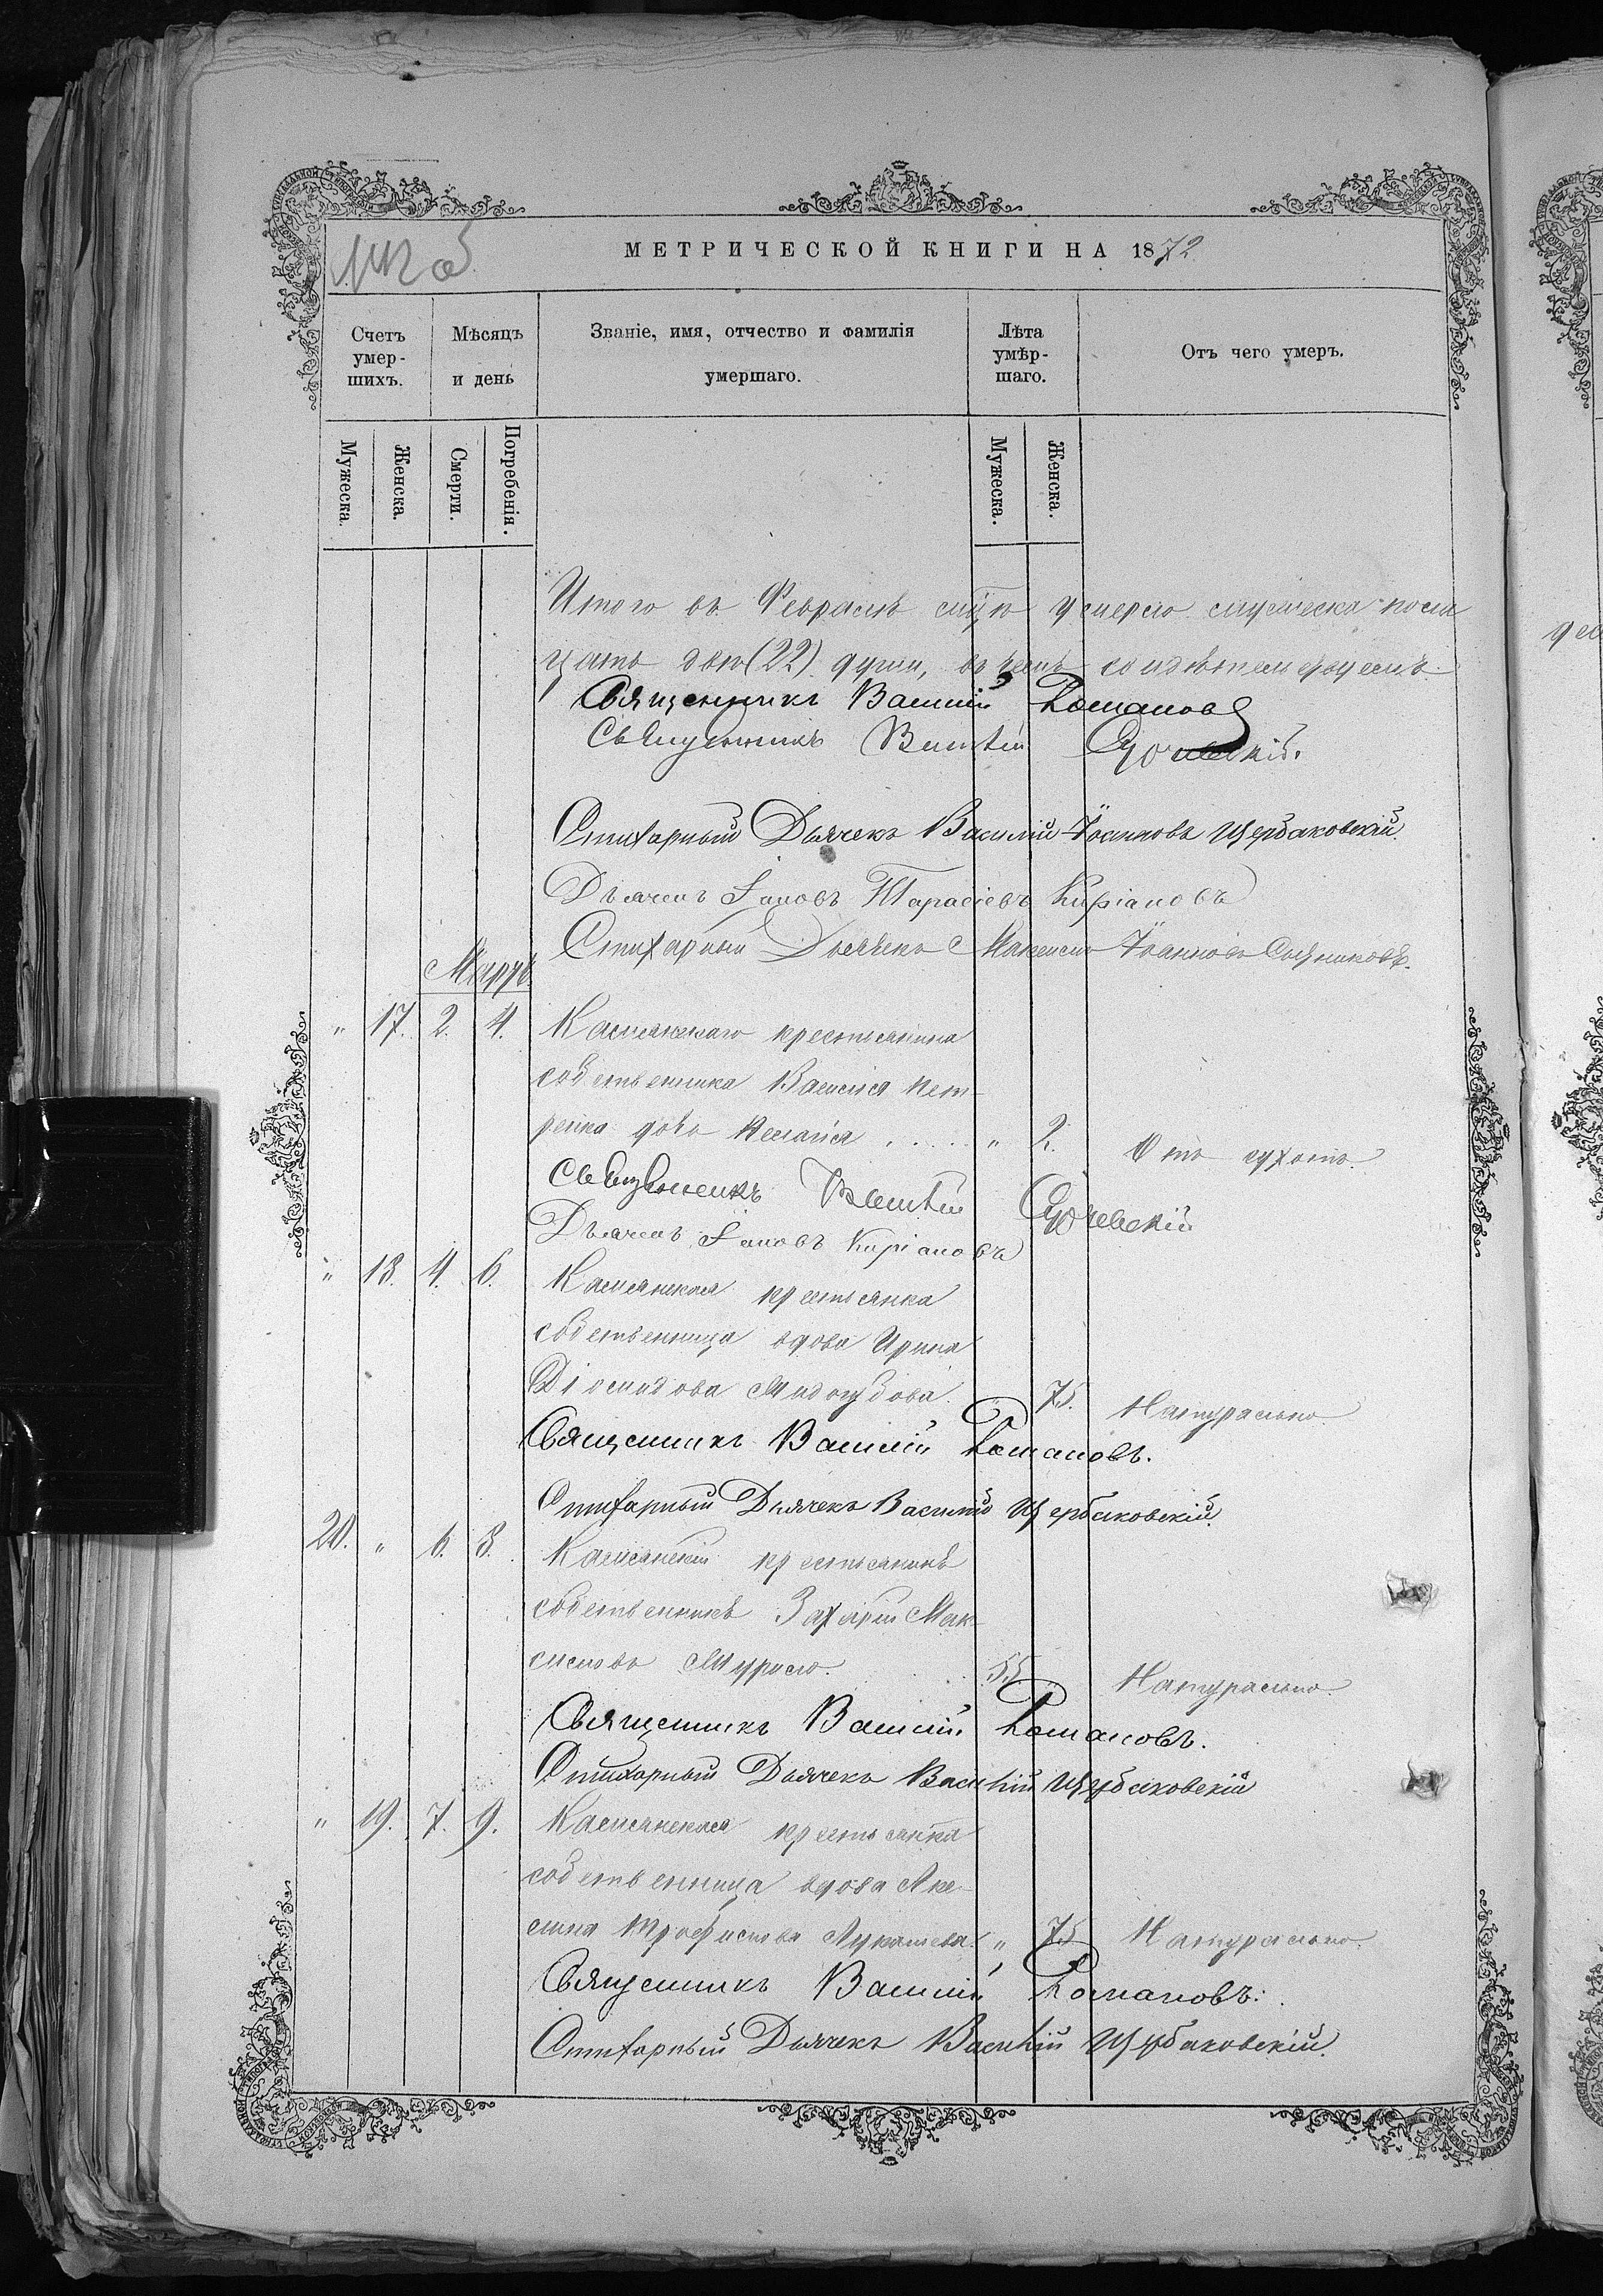 МЕТРИЧЕСКОЙ КНИГИ НА 1872
Счетъ умер-шихъ.
Мѣсяцъ и день
Званіе, имя, отчество и фамилія умершаго.
Лѣта умѣр-шаго.
Отъ чего умеръ.
Мужеска. Женска. Смерти. Погребенія. Мужеска. Женска.
Итого въ Февралѣ умерло
цать двѣ (22) души, въ чемъ
Священникъ Василій Романовъ
Священникъ
Стихарный Дьячекъ Василій Іоанновъ Щербаковскій.
Дьячекъ Іаковъ Тарасіевъ Киріановъ
Стихарный Дьячекъ Максимъ Іоанновъ
Мартъ
" 17. 2. 4. Каменскаго крестьянина
собственника Василія Пет-
ренка дочь " 2. Отъ сухотъ.
Священникъ
Дьячекъ Іаковъ Киріановъ
" 18. 4. 6. крестьянка
собственница вдова Ирина
Діомидова 75. Натурально.
Священникъ Василій Романовъ.
Стихарный Дьячекъ Василій Щербаковскій.
20. " 6. 8. крестьянинъ
собственникъ Захарій Мак-
симовъ 55 Натурально.
Священникъ Василій Романовъ.
Стихарный Дьячекъ Василій Щербаковскій
" 19. 7. 9. крестьянка
собственница вдова Аке-
лина Трофимова Лукашева. " 75 Натурально.
Священникъ Василій Романовъ.
Стихарный Дьячекъ Василій Щербаковскій.